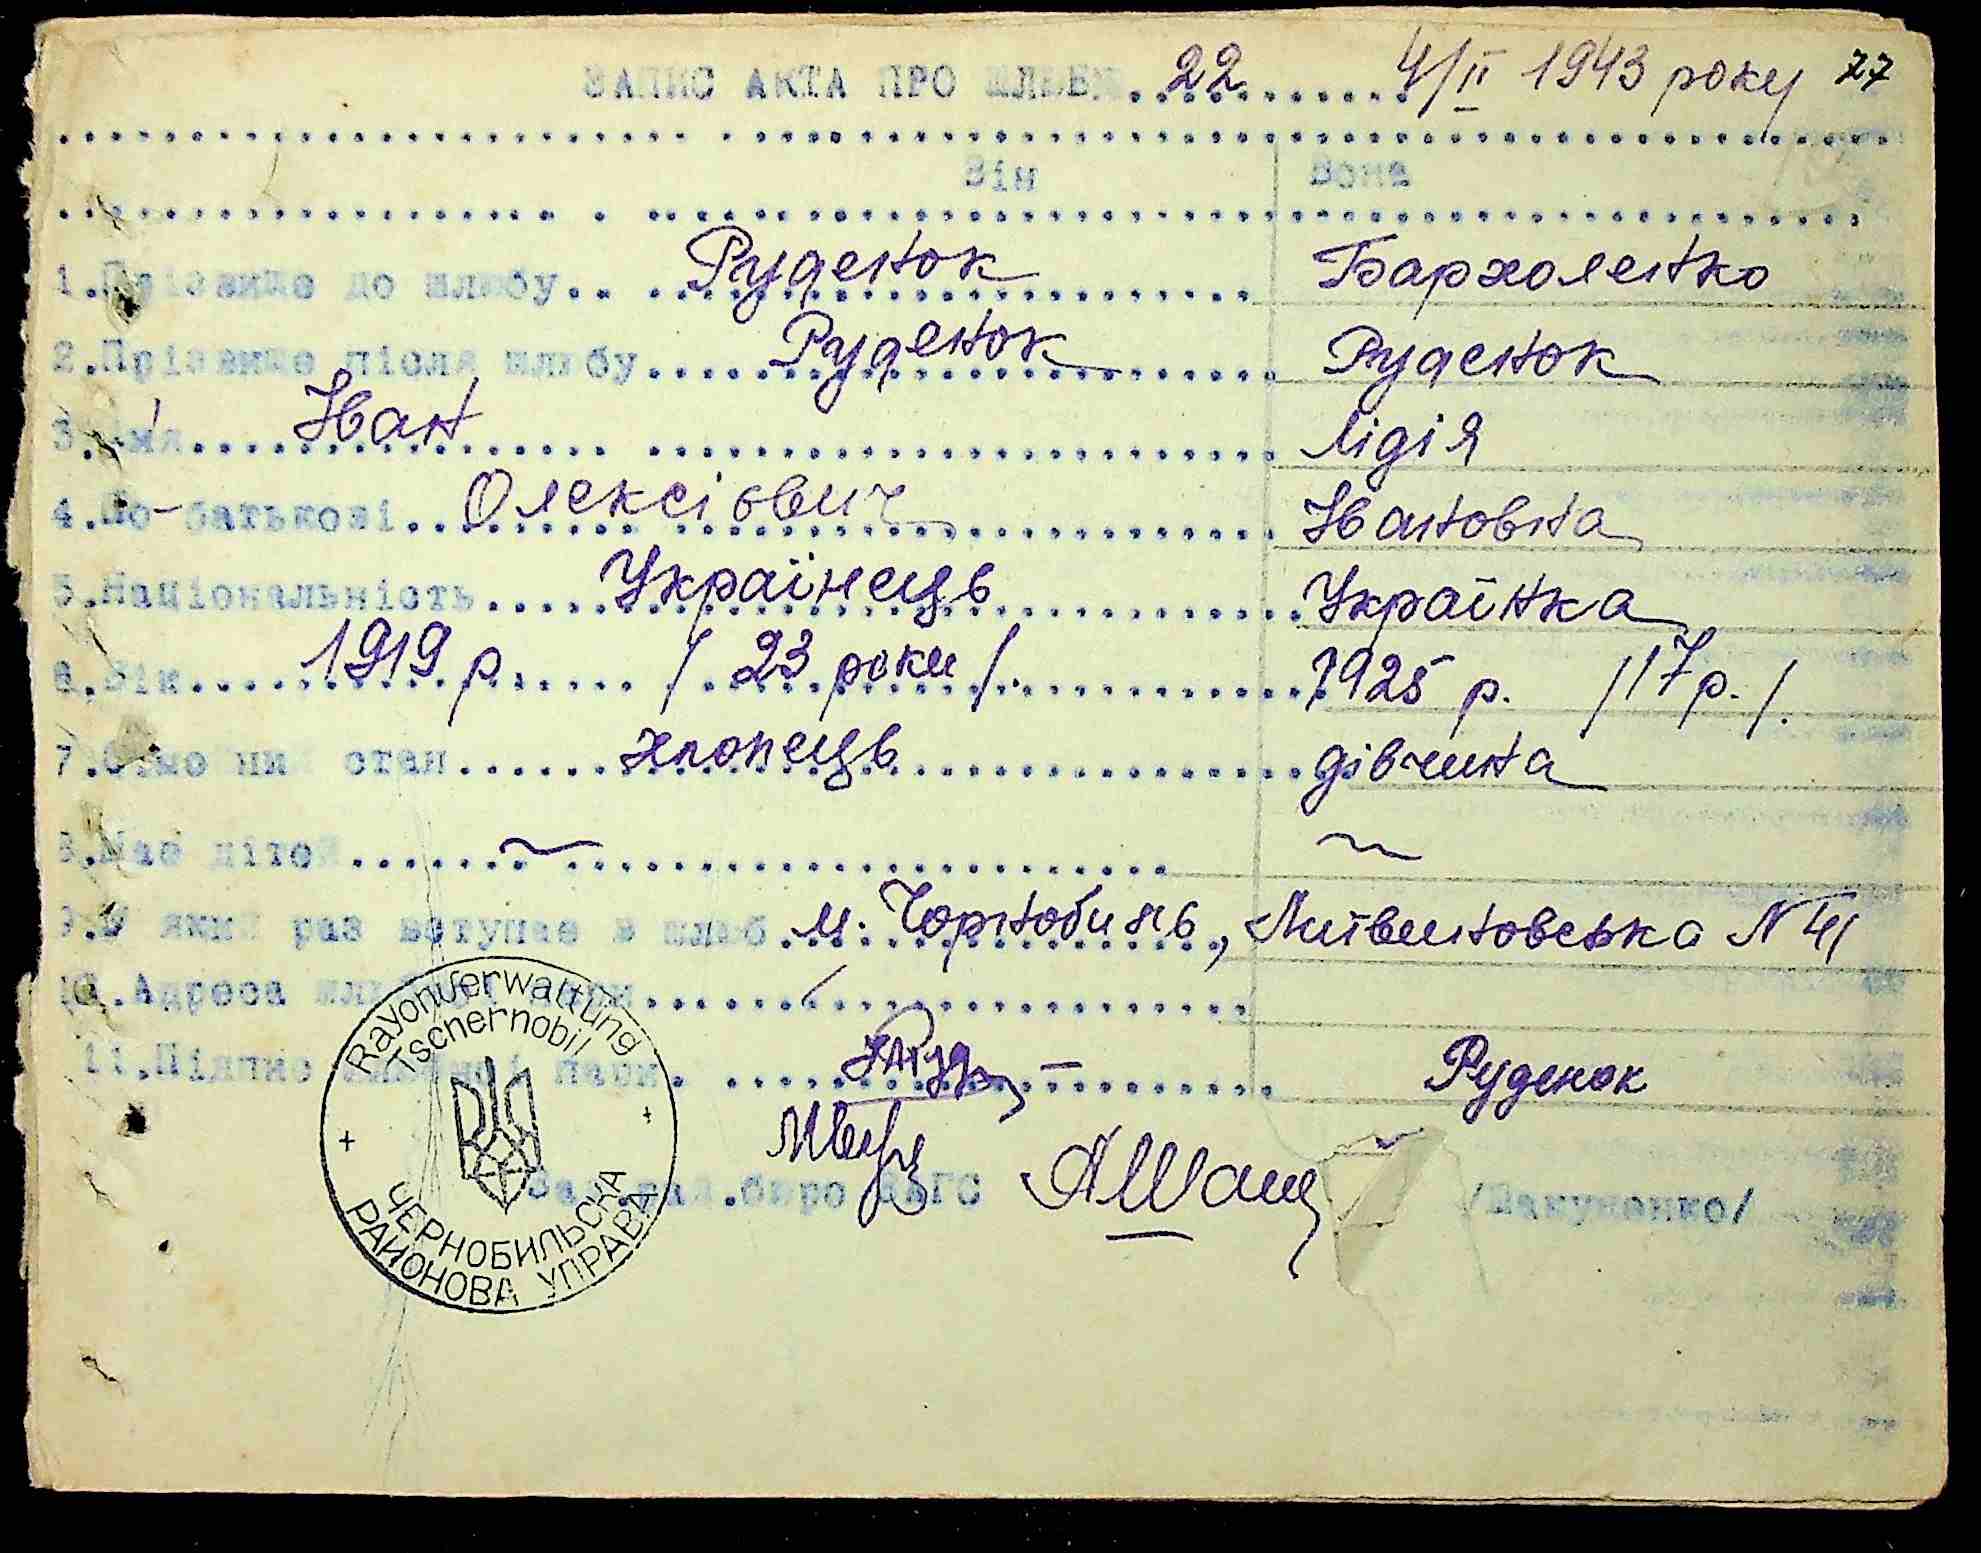 ЗАПИС АКТА ПРО ШЛЮБ 22 4/II 1943 року 77
Він Вона
1.Прізвище до шлюбу.. Руденок Бархоленко
2.Прізвище після шлюбу Руденок Руденок
3.Імя Іван Лідія
4.По-батькові Олексіович Івановна
5.Національність Українець Українка
6.Вік 1919 р. /23 роки/. 1925 р. /17 р./.
7. стан хлопець дівчина
8.Має дітей ~ ~
9.У який раз вступає в шлюб м. Чорнобиль, Литвиновська N 41
10.Адреса
11.Підпис пари. Руденок
бюро ЗАГС
Rayonverwaltung
Tschernobil
ЧЕРНОБИЛЬСКА
РАИОНОВА УПРАВА